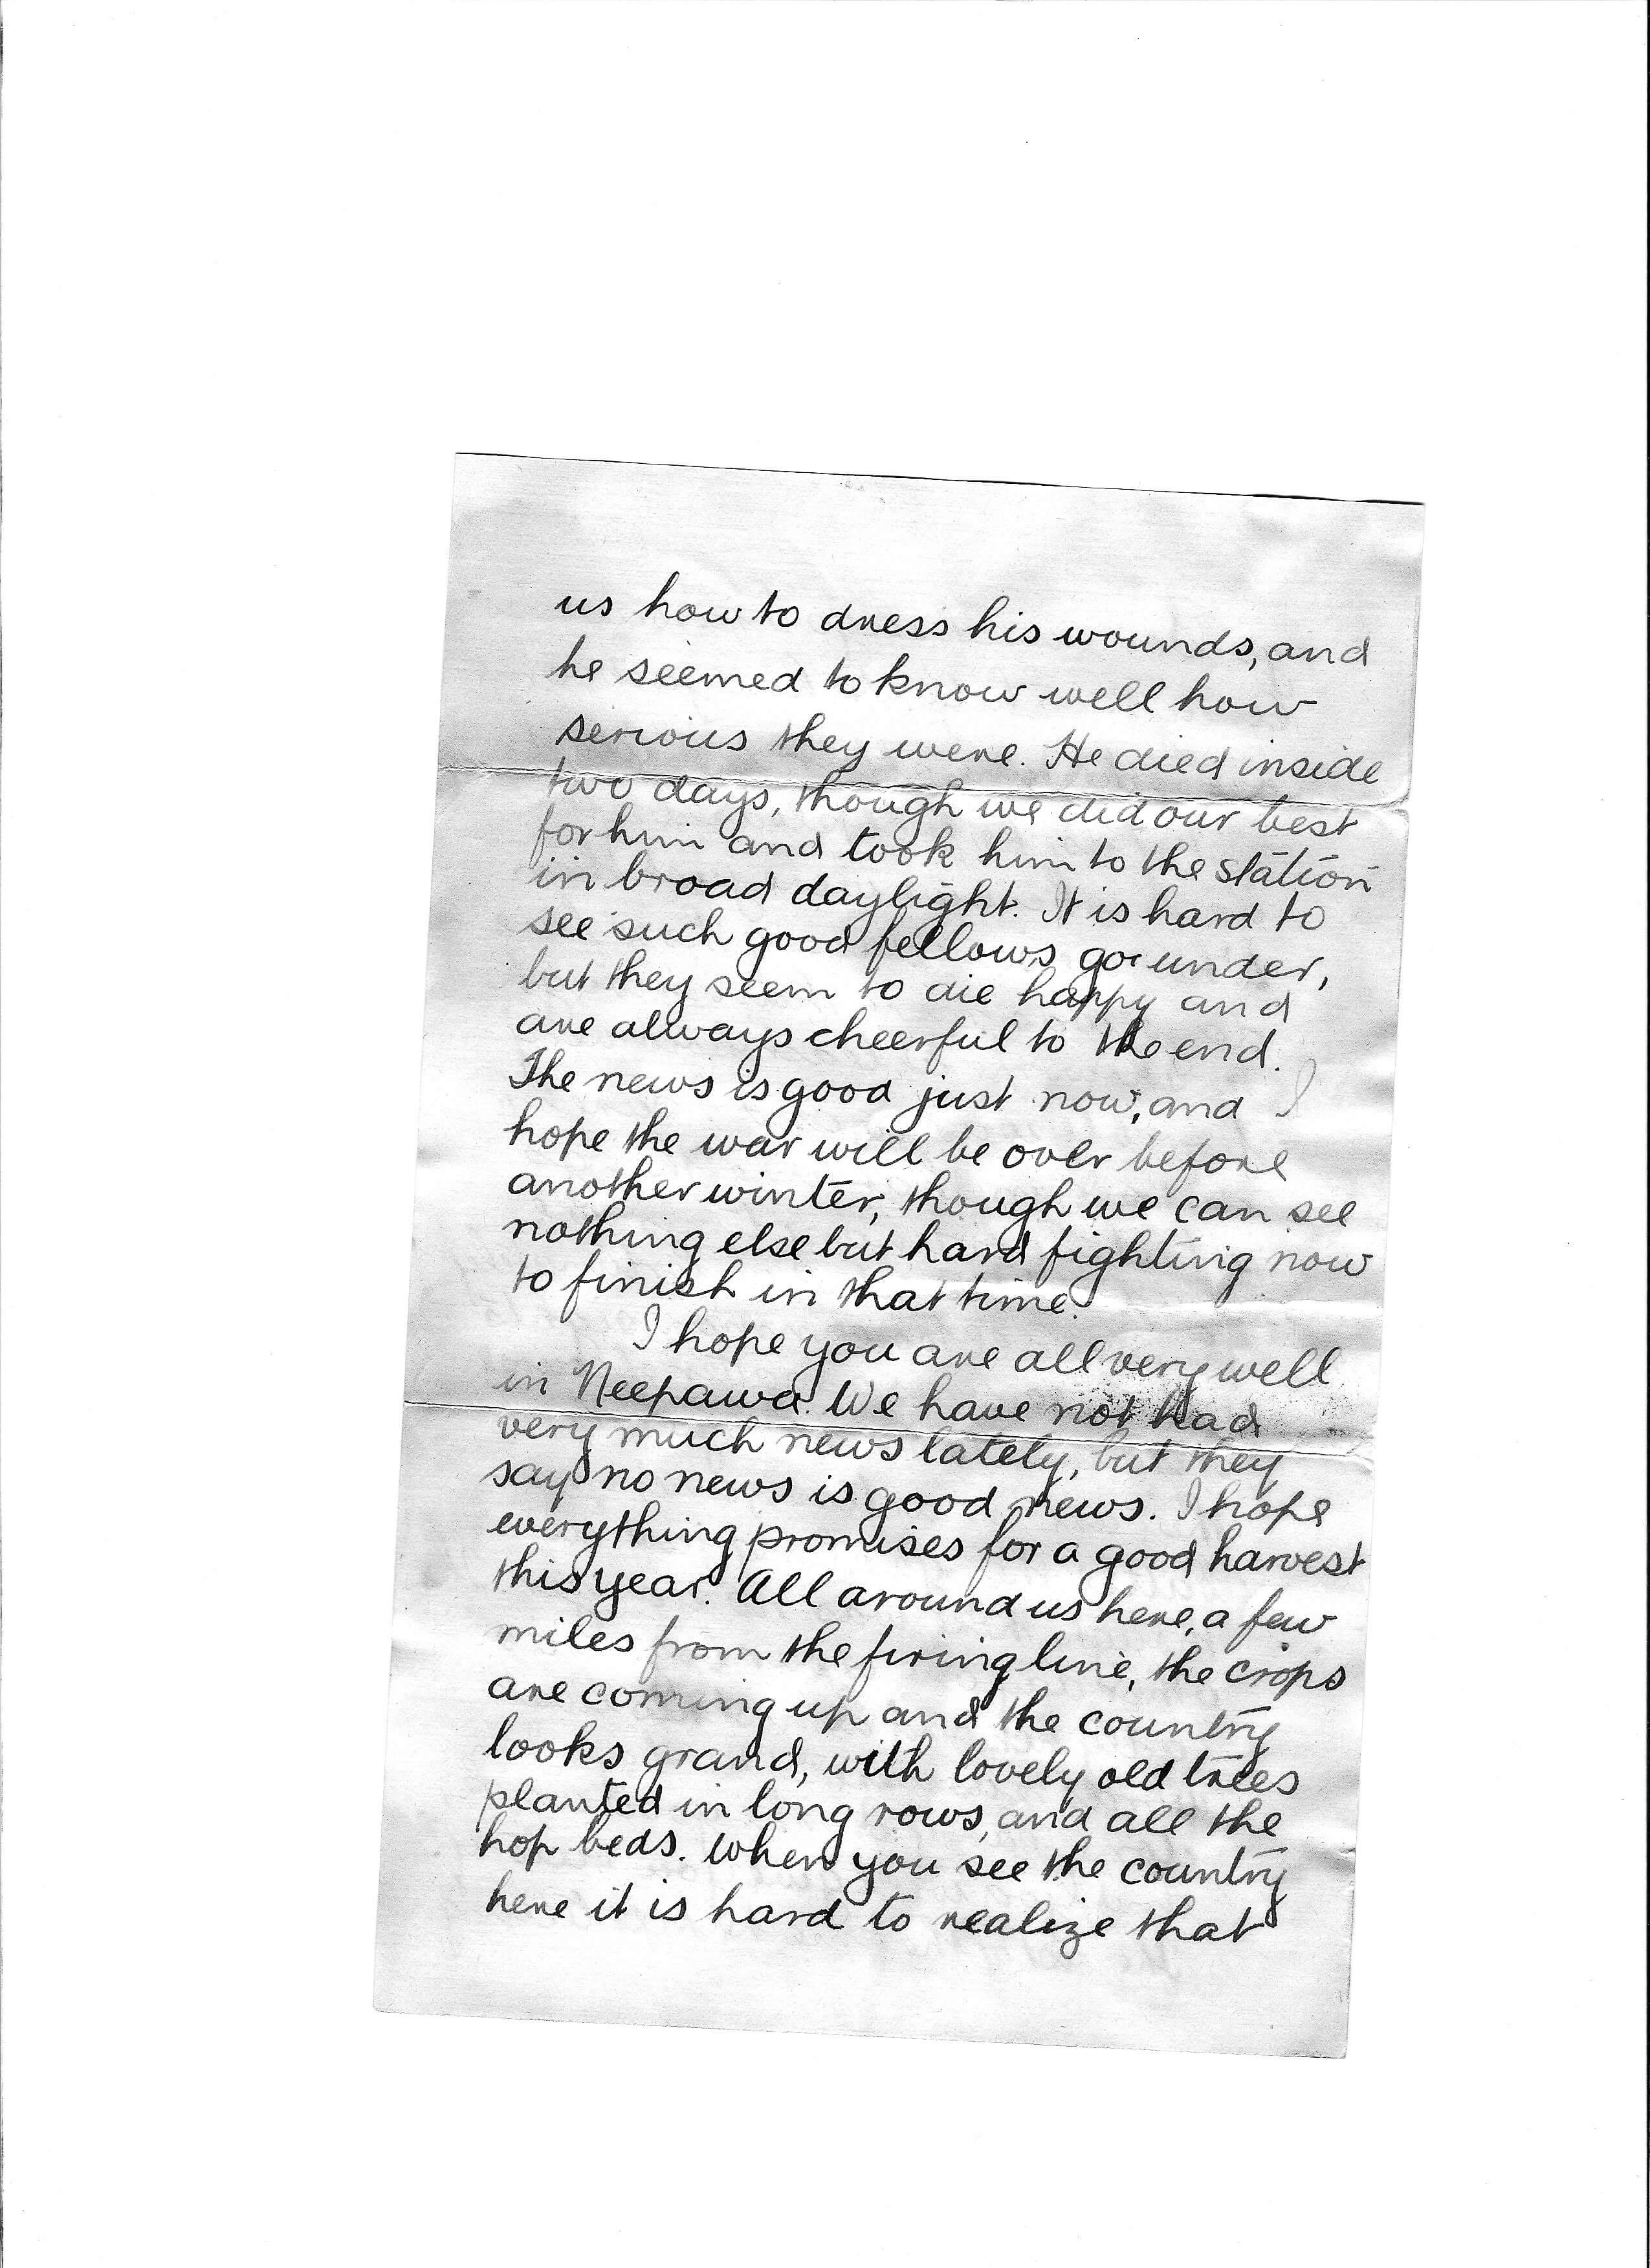 us how to dress his wounds, and
he seemed to know well how
serious they were. He died inside
two days, though we did our best
for him and took him to the station
in broad daylight. It is hard to
see such good fellows go under,
but they seem to die happy and
are always cheerful to the end.
The news is good just now, and I
hope the war will be over before
another winter, though we can see
nothing else but hard fighting now
to finish in that time.
I hope you are all very well
in Neepawa. We have not had
very much news lately, but they
say no news is good news. I hope
everything promises for a good harvest
this year. All around us here, a few
miles from the firing line, the crops
are coming up and the country
looks grand, with lovely old trees
planted in long rows, and all the
hop beds. When you see the country
here it is hard to realize that